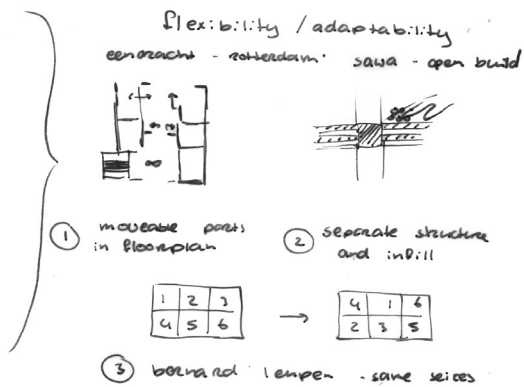 flexibility / adaptability
eendracht - rotterdam
sawa - open build
1 moveable parts
in floorplan
2 separate structure
and infill
1 2 3
4 5 6
→
4 1 6
2 3 5
3 bernard leupen - same seizes